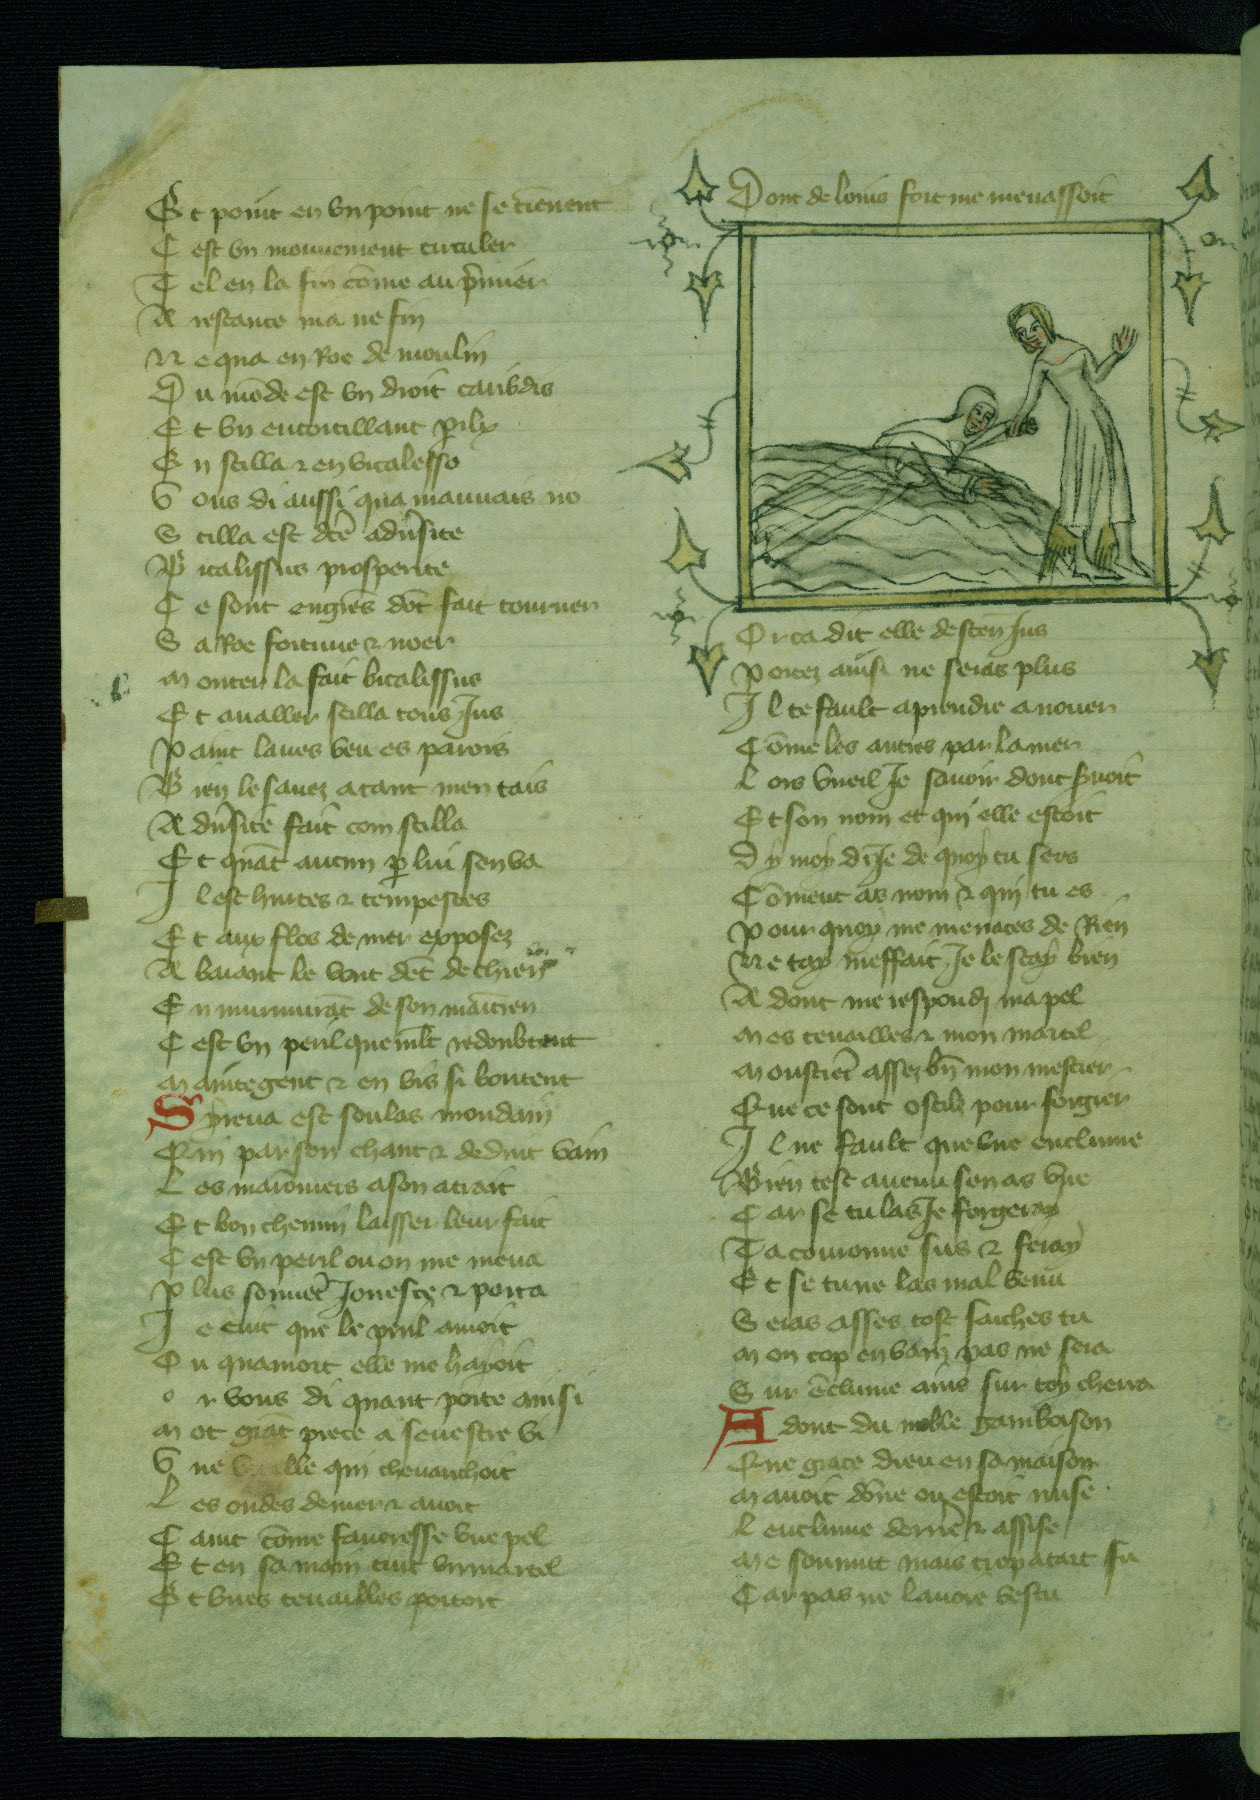 Et point en vn point ne se tiēnent
C est vn mouuement circuler
T el en la fin cōme au p̄mier
A restance ma ne fin
N e qua en Roe de moulin
D u mōde est vn droit caribdis
E t vn entortillant perilx
E n scilla ⁊ en bitalesso
V ous di aussi qua mauuais no
S cilla est dc̄e aduersite
B italissus prosperite
C e sont engiēs dōt fait tourner
S a Roe fortune ⁊ noer
M onter la fait bitalissus
E t aualler scilla tous Jus
P aint laues veu es parois
B ien le sauez atant men tais
A duersite fait com scilla
E t quāt aucun par lui sen va
I l est hurtes ⁊ tempestes
E t aux flos de mer exposez
A baiant le vont dēt de chien
E n murmurāt de son maītien
C est vn peril que mlt redoubtent
M aintegent ⁊ en vis si boutent
Syrena est soulas mondain
Qui par son chant ⁊ deduit vain
L es maroniers a son atrait
E t bon chemin laisser leur fait
C est vn peril ou on me mena
P lus souuēt Jonesce ⁊ porta
J e cuit que le peril amoit
O u quamort elle me hayoit
O r vous di quant porte ainsi
M ot grāt piece a senestre vi
V ne vielle qui cheuauchoit
L es ondes de mer ⁊ auoit
C aint cōme faueresse vne pel
E t en sa main tint vn martel
E t vnes tenailles portoit
Dont de loins fort me menassoit
Or ca dit elle descen Jus
P ortez ainsi ne seras plus
I l te fault aprendre a nouer
C ōme les autres par la mer
L ors vueil Je sauoir dont seruoit
E t son nom et qui elle estoit
D y moy di Je de quoy tu sers
C ōment as nom ⁊ qui tu es
P our quoy me menaces de Rien
N e tay meffait Je le scay bien
A dont me respondi ma pel
M es tenailles ⁊ mon martel
M oustrēt assez bn̄ mon mestier
Q ue ce sont ostilz pour forgier
I l ne fault que vne enclume
B ien test auenu sen as vne
C ar se tu las Je forgeray
T a couronne sus ⁊ feray
E t se tu ne las mal venu
S eras asses tost saiches tu
M on cop en vain pas ne sera
S ur ēclume ains sur toy cherra
A dont du noble gamboison
Q ue grace dieu en sa maison
M auoit dōne ou estoit mise
L enclume derriē ⁊ assise
M e souuint mais trop a tart fu
C ar pas ne lauoie vestu